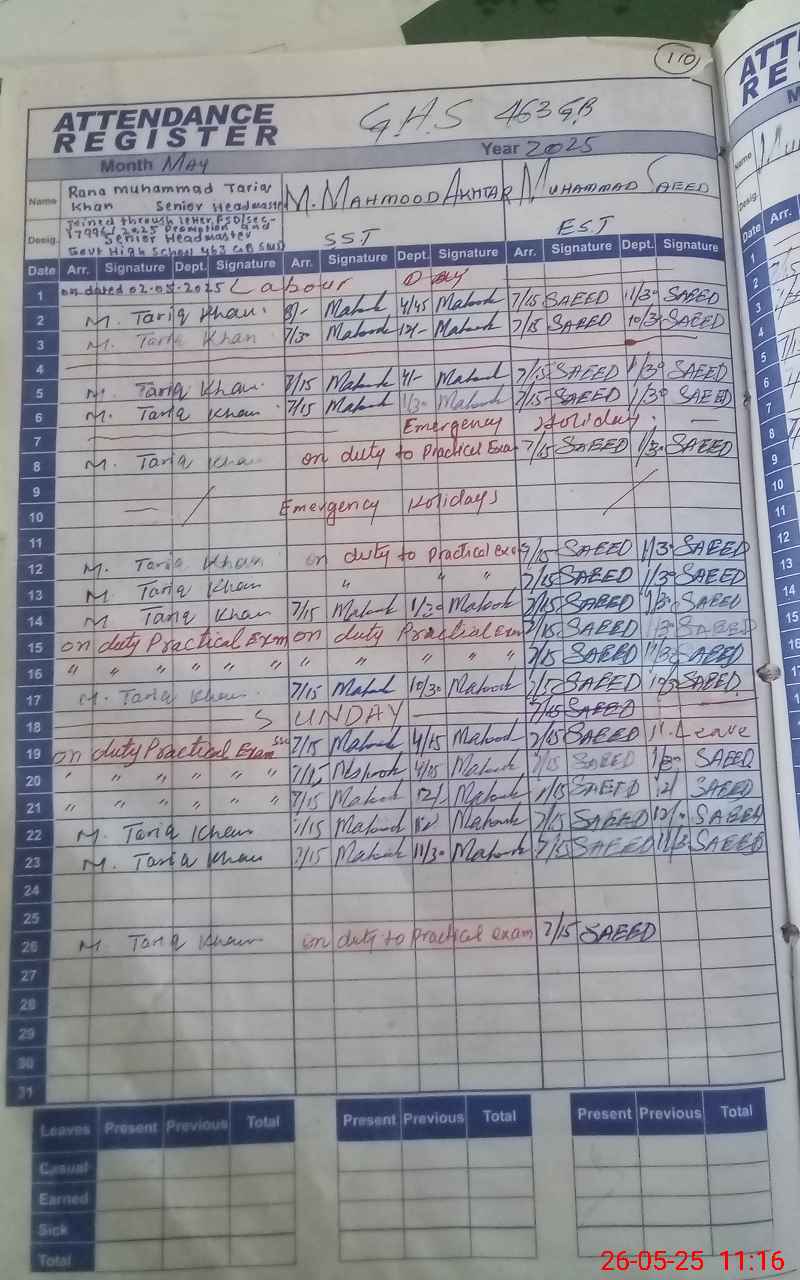 110
ATTENDANCE REGISTER
G.H.S 463 G.B
Month May
Year 2025
Name
Rana Muhammad Tariq Khan Senior Headmaster
M. MAHMOOD AKHTAR
MUHAMMAD SAEED
Desig.
Joined through letter, FSD/sec- 17996/2025 Promotion and Senior Headmaster Govt High School 463 GB SMD
S.S.T
E.S.T
Date Arr. Signature Dept. Signature Arr. Signature Dept. Signature Arr. Signature Dept. Signature
1 on dated 02-05-2025 Labour Day
2 M. Tariq Khan. 8/- Mahmood 4/45 Mahmood 7/15 SAEED 11/30 SAEED
3 M. Tariq Khan 7/30 Mahmood 12/- Mahmood 7/15 SAEED 10/30 SAEED
4
5 M. Tariq Khan 7/15 Mahmood 4/- Mahmood 7/15 SAEED 1/30 SAEED
6 M. Tariq Khan 7/15 Mahmood 1/30 Mahmood 7/15 SAEED 1/30 SAEED
7 Emergency Holiday.
8 M. Tariq Khan on duty to Practical Exam 7/15 SAEED 1/30 SAEED
9
10 Emergency Holidays
11
12 M. Tariq Khan on duty to practical exam 7/15 SAEED 1/30 SAEED
13 M. Tariq Khan " " " 7/15 SAEED 1/30 SAEED
14 M. Tariq Khan 7/15 Mahmood 1/30 Mahmood 7/15 SAEED 1/30 SAEED
15 on duty Practical Exam on duty Practical exam 7/15 SAEED 1/30 SAEED
16 " " " " " " " " " " " 7/15 SAEED 11/30 SAEED
17 M. Tariq Khan 7/15 Mahmood 10/30 Mahmood 7/15 SAEED SAEED
18 SUNDAY 7/15 SAEED
19 on duty Practical Exam SSC 7/15 Mahmood 4/15 Mahmood 7/15 SAEED Leave
20 " " " " " " 7/15 Mahmood 4/15 Mahmood 7/15 SAEED 1/30 SAEED
21 " " " " " " 7/15 Mahmood 12/- Mahmood 7/15 SAEED 12/ SAEED
22 M. Tariq Khan 7/15 Mahmood Mahmood 7/15 SAEED SAEED
23 M. Tariq Khan 7/15 Mahmood 11/30 Mahmood 7/15 SAEED 11/30 SAEED
24
25
26 M. Tariq Khan on duty to practical exam 7/15 SAEED
27
28
29
30
31
Leaves Present Previous Total Present Previous Total Present Previous Total
Casual
Earned
Sick
Total
26-05-25 11:16